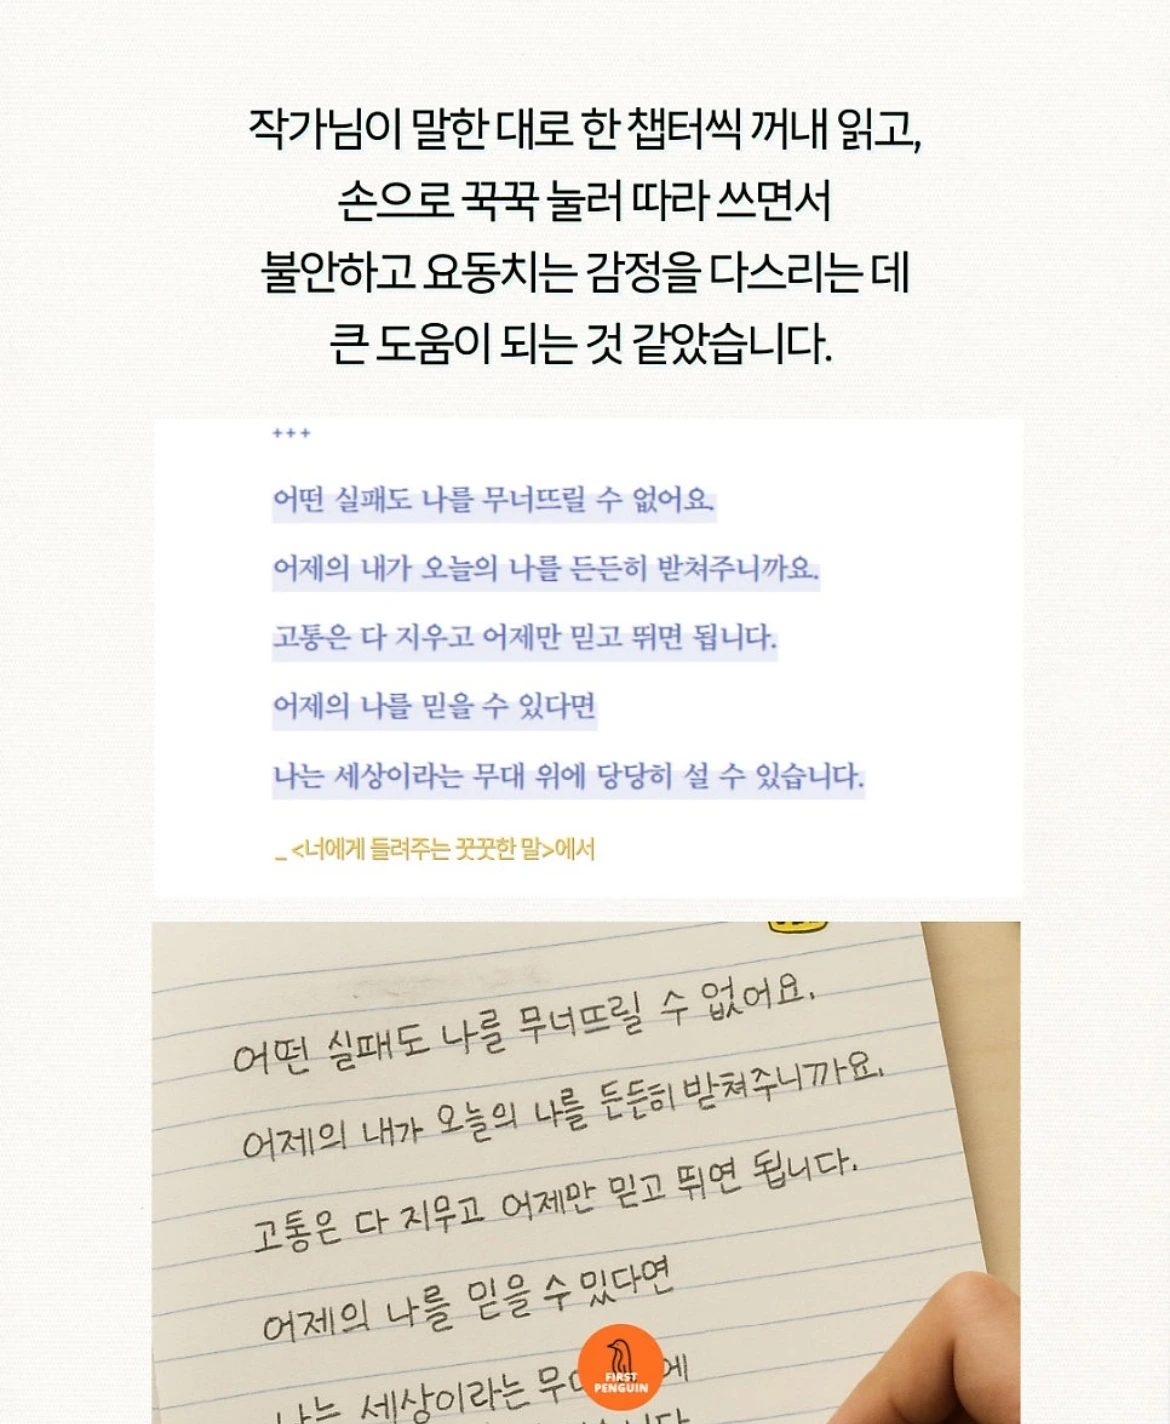 작가님이 말한 대로 한 챕터씩 꺼내 읽고,
손으로 꾹꾹 눌러 따라 쓰면서
불안하고 요동치는 감정을 다스리는 데
큰 도움이 되는 것 같았습니다.
+++
어떤 실패도 나를 무너뜨릴 수 없어요.
어제의 내가 오늘의 나를 든든히 받쳐주니까요.
고통은 다 지우고 어제만 믿고 뛰면 됩니다.
어제의 나를 믿을 수 있다면
나는 세상이라는 무대 위에 당당히 설 수 있습니다.
_ <너에게 들려주는 꿋꿋한 말>에서
어떤 실패도 나를 무너뜨릴 수 없어요.
어제의 내가 오늘의 나를 든든히 받쳐주니까요.
고통은 다 지무고 어제만 믿고 뛰연 됩니다.
어제의 나를 믿을 수 있다면
나는 세상이라는 에
FIRST
PENGUIN